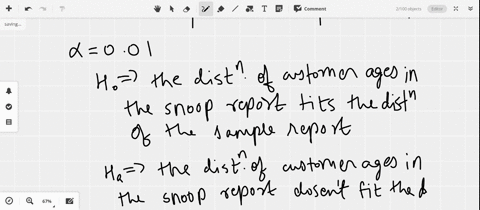 saving...
Comment
2/100 objects
Editor
α = 0.01
H₀ => the distⁿ. of customer ages in
the snoop report fits the distⁿ
of the sample report
Hₐ => the distⁿ. of customer ages in
the snoop report dosen't fit the d
67%